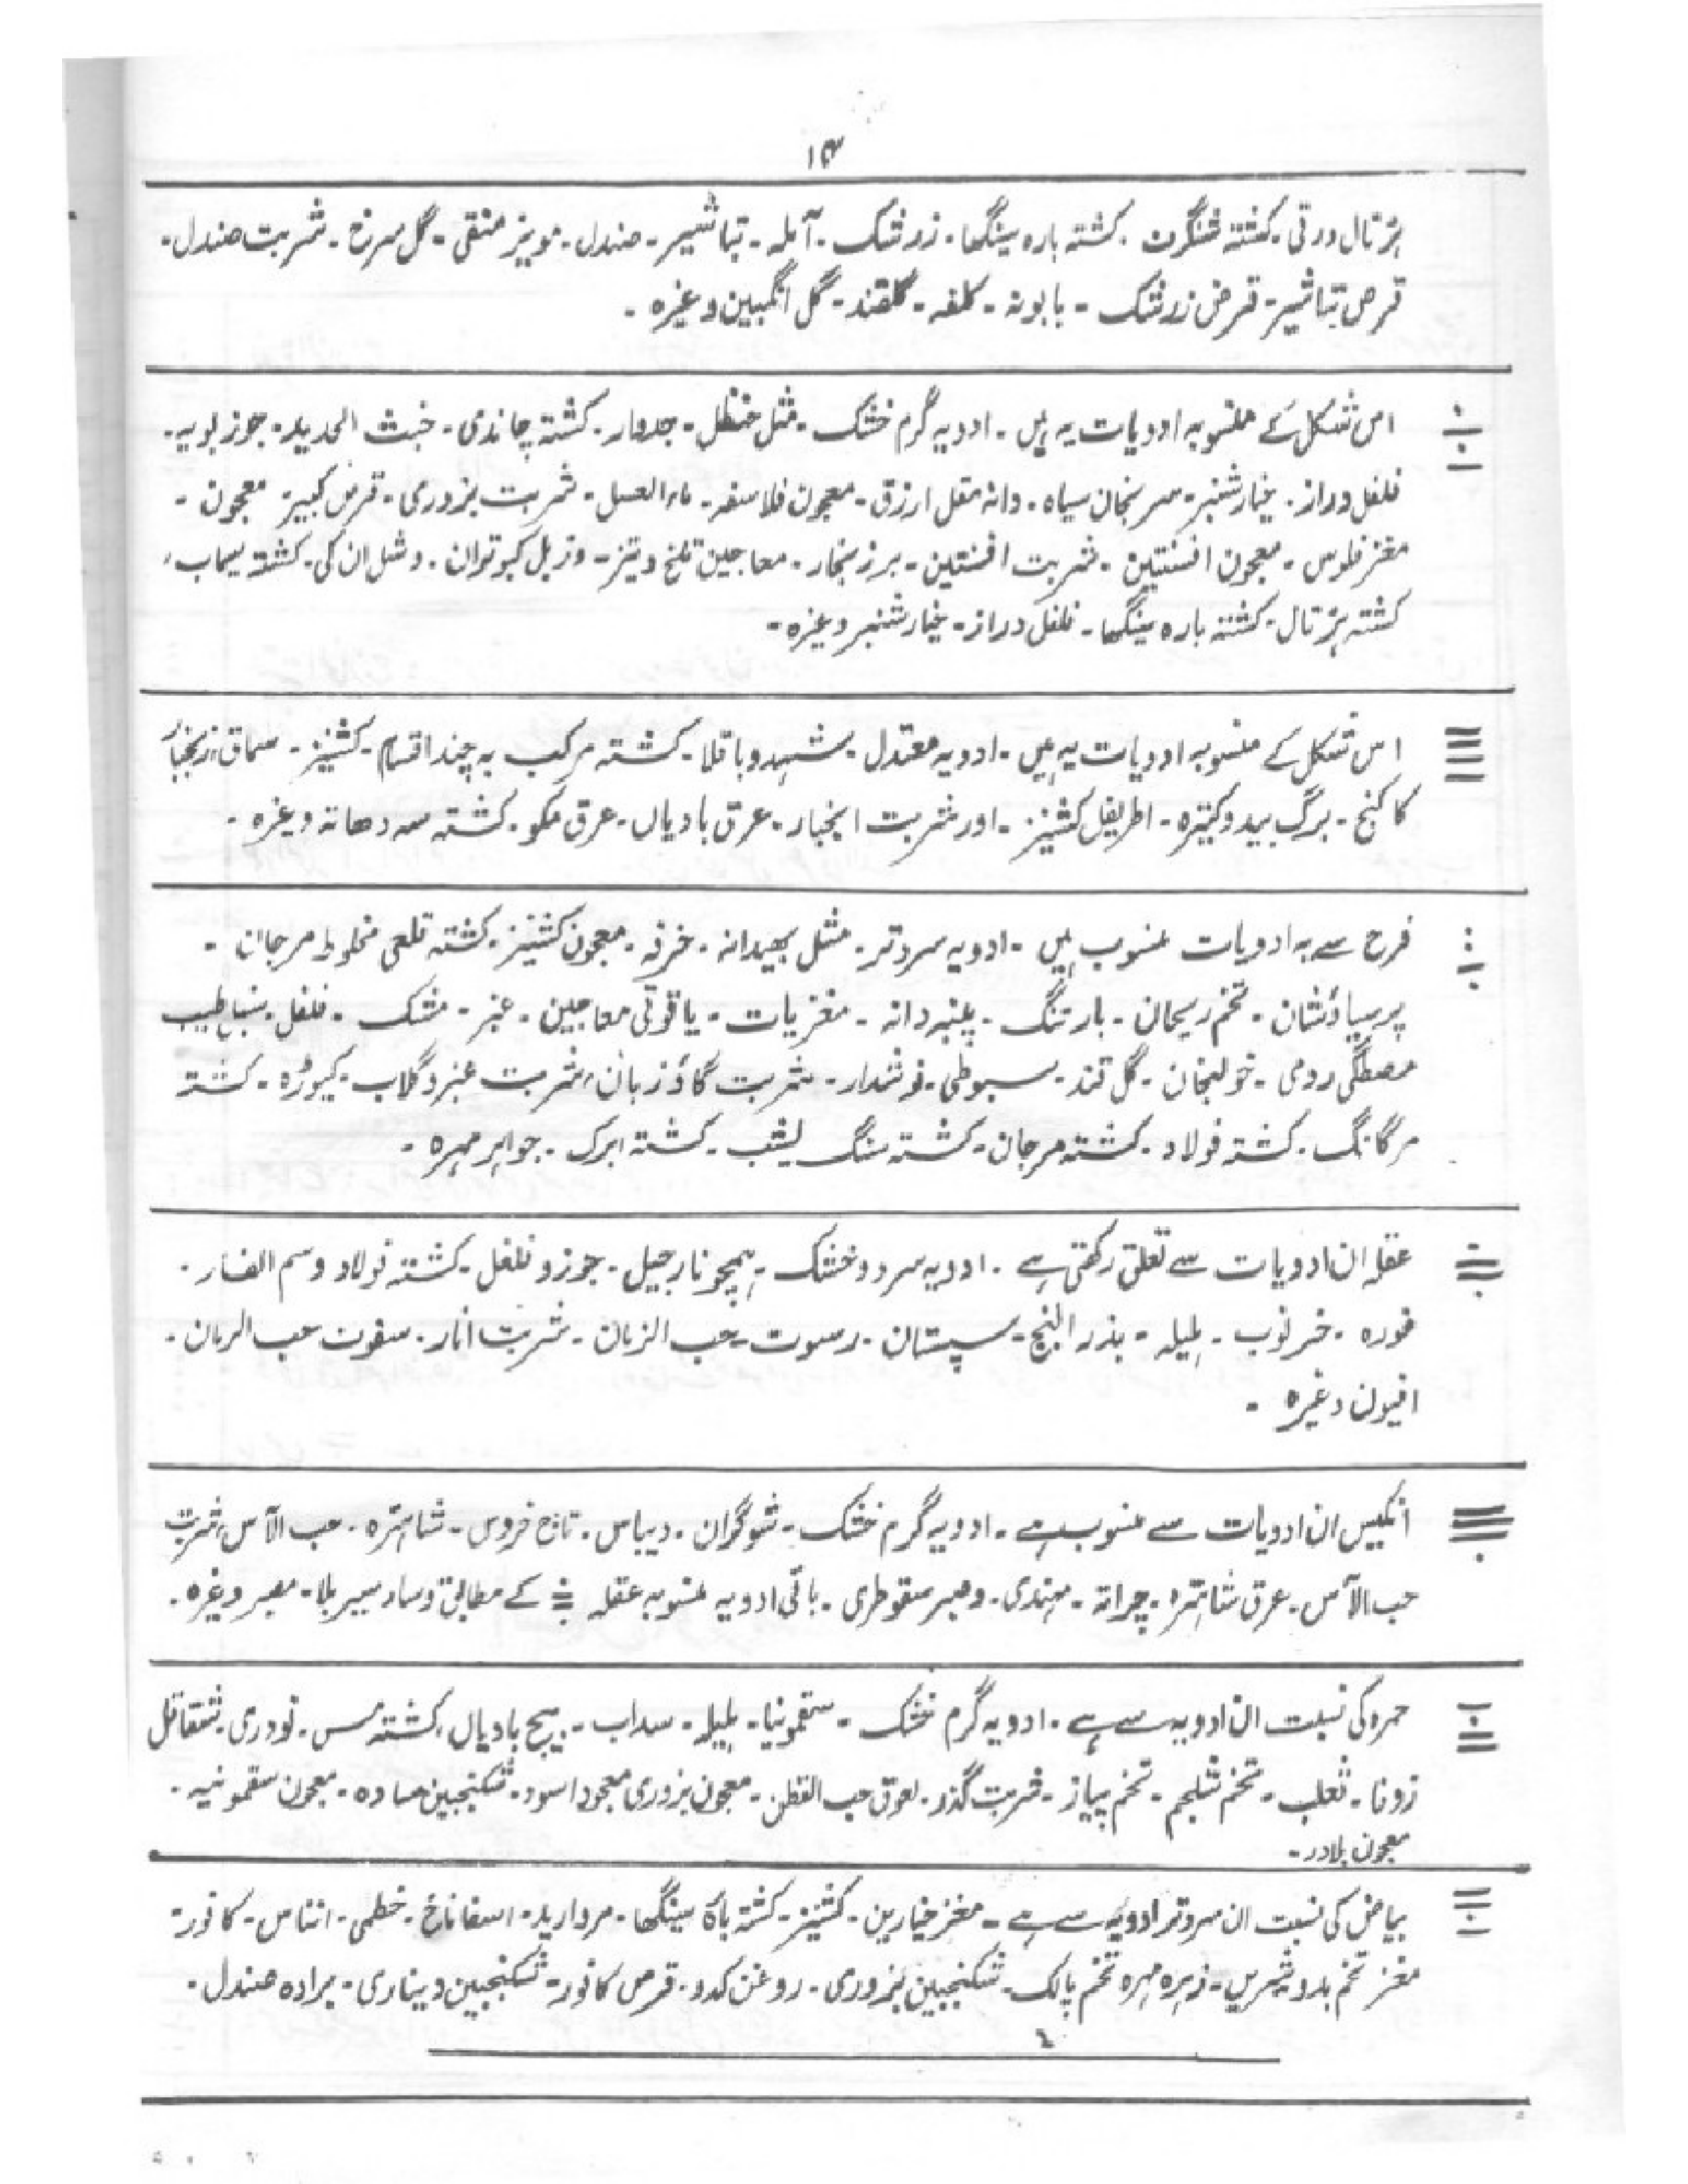 ۱۴
ہڑتال ورقی۔ کشتہ شنگرف۔ کشتہ بارہ سینگھا۔ زرشک۔ آملہ۔ تباشیر۔ صندل۔ مویز منقی۔ گل سرخ۔ شربت صندل۔
قرص تباشیر۔ قرض زرشک۔ بابونہ۔ کلفہ۔ گلقند۔ گل انگبین وغیرہ۔
اس شکل کے منسوبہ ادویات یہ ہیں۔ ادویہ گرم خشک۔ مثل حنظل۔ جدوار۔ کشتہ چاندی۔ خبث الحدید۔ جوز بویہ۔
فلفل دراز۔ خیار شنبر۔ سرنجان سیاہ۔ دانہ مقل ارزق۔ معجون فلاسفہ۔ ماءالعسل۔ شربت بزوری۔ قرص کبیر۔ معجون۔
مغز فلوس۔ معجون افسنتین۔ شربت افسنتین۔ برزنجار۔ معاجین تلخ و تیز۔ وزبل کبوتران۔ ومثل ان کی۔ کشتہ سیماب،
کشتہ ہڑتال۔ کشتہ بارہ سینگھا۔ فلفل دراز۔ خیار شنبر وغیرہ۔
اس شکل کے منسوبہ ادویات یہ ہیں۔ ادویہ معتدل۔ شہد و باقلا۔ کشتہ مرکب بہ چند اقسام۔ کشنیز۔ سماق،
کاکنج۔ برگ بید و کتیرہ۔ اطریفل کشنیز۔ اور شربت انجبار۔ عرق بادیاں۔ عرق مکو۔ کشتہ سہ دھاتہ وغیرہ۔
فرح سے یہ ادویات منسوب ہیں۔ ادویہ سرد تر۔ مثل بھیدانہ۔ خرفہ۔ معجون کشنیز۔ کشتہ قلعی مخلوط مرجان۔
پرسیاؤشان۔ تخم ریحان۔ بارتنگ۔ پنبہ دانہ۔ مغزیات۔ یاقوتی معاجین۔ عنبر۔ مشک۔ فلفل۔
مصطگی رومی۔ خولنجان۔ گل قند۔ سبوطی۔ نوشدار۔ شربت گاؤزبان، شربت عنبر و گلاب۔ کیوڑہ۔ کشتہ
مرگانگ۔ کشتہ فولاد۔ کشتہ مرجان۔ کشتہ سنگ یشب۔ کشتہ ابرک۔ جواہر مہرہ۔
عقلہ ان ادویات سے تعلق رکھتی ہے۔ ادویہ سرد و خشک۔ ہمچو نارجیل۔ جوز و فلفل۔ کشتہ فولاد وسم الفار۔
فورہ۔ خرنوب۔ ہلیلہ۔ بذرالبنج۔ سپستان۔ رسوت۔ حب الزبان۔ شربت انار۔ سفوف حب الرمان۔
افیون وغیرہ۔
انکیس ان ادویات سے منسوب ہے۔ ادویہ گرم خشک۔ شوگران۔ دیباس۔ تاج خروس۔ شاہترہ۔ حب الآس، شربت
حب الآس۔ عرق شاہترہ۔ چرائتہ۔ مہندی۔ وصبر سقوطری۔ باقی ادویہ منسوبہ عقلہ کے مطابق وساد سیربلا۔ مصبر وغیرہ۔
حمرہ کی نسبت ان ادویہ سے ہے۔ ادویہ گرم خشک۔ سقمونیا۔ ہلیلہ۔ سداب۔ بیج بادیاں۔ کشتہ مس۔ تودری۔ شقاقل
زوفا۔ ثعلب۔ تخم شلجم۔ تخم پیاز۔ شربت گذر۔ لعوق حب القطن۔ معجون بزوری معجون اسود۔ شکنجبین سادہ۔ معجون سقمونیہ۔
معجون بلادر۔
بیاض کی نسبت ان سرد تر ادویہ سے ہے۔ مغز خیارین۔ کشنیز۔ کشتہ بارہ سینگھا۔ مروارید۔ اسفاناخ۔ خطمی۔ انناس۔ کافور۔
مغز تخم بدو شیریں۔ زہرہ مہرہ تخم پالک۔ شکنجبین بزوری۔ روغن کدو۔ قرص کافور۔ شکنجبین دیناری۔ برادہ صندل۔